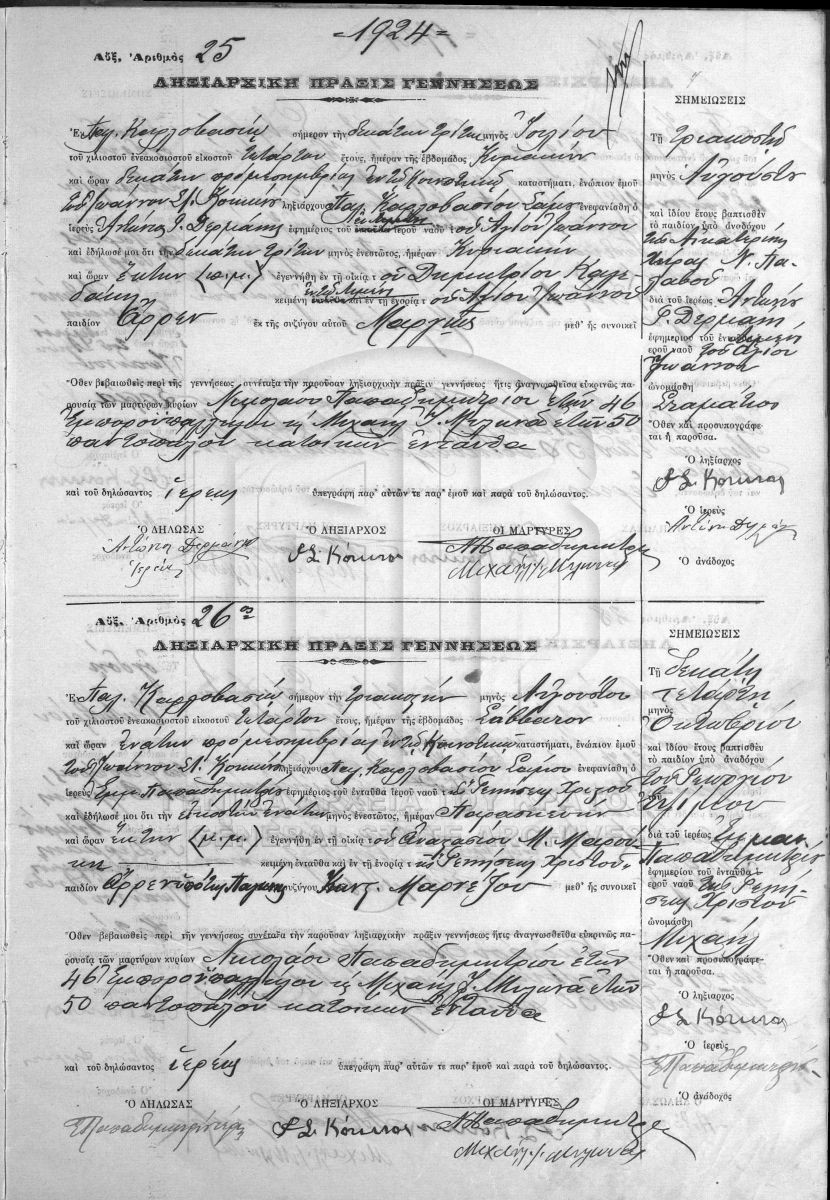 =1924=
Αὔξ. Ἀριθμὸς 25
ΛΗΞΙΑΡΧΙΚΗ ΠΡΑΞΙΣ ΓΕΝΝΗΣΕΩΣ
Ἐν Παλ. Καρλοβασίῳ σήμερον τὴν δεκάτην τρίτην μηνὸς Ἰουλίου
τοῦ χιλιοστοῦ ἐνεακοσιοστοῦ εἰκοστοῦ τετάρτου ἔτους, ἡμέραν τῆς ἑβδομάδος Κυριακὴν
καὶ ὥραν δεκάτην πρὸ μεσημβρίας ἐν τῷ Κοινοτικῷ καταστήματι, ἐνώπιον ἐμοῦ
τοῦ Ἰωάννου Σ. Κόκκινου ληξιάρχου Παλ. Καρλοβασίου Σάμου ἐνεφανίσθη ὁ
ἱερεὺς Ἀντώνιος Γ. Δερμάνης ἐφημέριος τοῦ ἐν Λιμένι ἱεροῦ ναοῦ τοῦ Ἁγίου Ἰωάννου
καὶ ἐδήλωσέ μοι ὅτι τὴν δεκάτην τρίτην μηνὸς ἐνεστῶτος, ἡμέραν Κυριακὴν
καὶ ὥραν ἕκτην (π.μ.) ἐγεννήθη ἐν τῇ οἰκίᾳ τοῦ Δημητρίου
κειμένῃ ἐν τῷ Λιμένι καὶ ἐν τῇ ἐνορίᾳ τοῦ Ἁγίου Ἰωάννου
παιδίον Ἄρρεν ἐκ τῆς συζύγου αὐτοῦ μεθ' ἧς συνοικεῖ
Ὅθεν βεβαιωθεὶς περὶ τῆς γεννήσεως συνέταξα τὴν παροῦσαν ληξιαρχικὴν πρᾶξιν γεννήσεως ἥτις ἀναγνωσθεῖσα εὐκρινῶς πα-
ρουσίᾳ τῶν μαρτύρων κυρίων Νικολάου Παπαδημητρίου ἐτῶν 46
Ἐμποροϋπαλλήλου κ Μιχαὴλ Ι. Μυλωνᾶ ἐτῶν 50
παντοπώλου κατοίκων ἐνταῦθα
καὶ τοῦ δηλώσαντος ἱερέως ὑπεγράφη παρ' αὐτῶν τε παρ' ἐμοῦ καὶ παρὰ τοῦ δηλώσαντος.
Ὁ ΔΗΛΩΣΑΣ Ὁ ΛΗΞΙΑΡΧΟΣ ΟΙ ΜΑΡΤΥΡΕΣ
Ἀντώνιος Δερμάνης Ι Σ. Κόκκινος Ν Παπαδημητρίου
Ἱερεύς Μιχαὴλ Ι. Μυλωνᾶς
ΣΗΜΕΙΩΣΕΙΣ
Τῇ τριακοστῇ
μηνὸς Αὐγούστου
καὶ ἰδίου ἔτους βαπτισθὲν
τὸ παιδίον ὑπὸ ἀναδόχου
τῆς Αἰκατερίνης
χήρας Ν. Πα-
διὰ τοῦ ἱερέως Ἀντωνίου
Γ. Δερμάνη
ἐφημερίου τοῦ ἐν Λιμένι
ἱεροῦ ναοῦ τοῦ Ἁγίου
Ἰωάννου
ὠνομάσθη
Σταμάτιος
Ὅθεν καὶ προσυπογράφε-
ται ἡ παροῦσα.
Ὁ ληξίαρχος
Ι Σ. Κόκκινος
Ὁ ἱερεὺς
Ἀντώνιος Δερμάνης
Ὁ ἀνάδοχος
Αὔξ. Ἀριθμὸς 26
ΛΗΞΙΑΡΧΙΚΗ ΠΡΑΞΙΣ ΓΕΝΝΗΣΕΩΣ
Ἐν Παλ. Καρλοβασίῳ σήμερον τὴν τριακοστὴν μηνὸς Αὐγούστου
τοῦ χιλιοστοῦ ἐνεακοσιοστοῦ εἰκοστοῦ τετάρτου ἔτους, ἡμέραν τῆς ἑβδομάδος Σάββατον
καὶ ὥραν ἐνάτην πρὸ μεσημβρίας ἐν τῷ Κοινοτικῷ καταστήματι, ἐνώπιον ἐμοῦ
τοῦ Ἰωάννου Σ. Κόκκινου ληξιάρχου Παλ. Καρλοβασίου Σάμου ἐνεφανίσθη ὁ
ἱερεὺς Ἐμμ. Παπαδημητρίου ἐφημέριος τοῦ ἐνταῦθα ἱεροῦ ναοῦ τῆς Γεννήσεως Χριστοῦ
καὶ ἐδήλωσέ μοι ὅτι τὴν εἰκοστὴν ἐνάτην μηνὸς ἐνεστῶτος, ἡμέραν Παρασκευὴν
καὶ ὥραν ἕκτην (μ.μ.) ἐγεννήθη ἐν τῇ οἰκίᾳ τοῦ Ἀναστασίου Μ.
κειμένῃ ἐνταῦθα καὶ ἐν τῇ ἐνορίᾳ τῆς Γεννήσεως Χριστοῦ
παιδίον Ἄρρεν συζύγου μεθ' ἧς συνοικεῖ
Ὅθεν βεβαιωθεὶς περὶ τῆς γεννήσεως συνέταξα τὴν παροῦσαν ληξιαρχικὴν πρᾶξιν γεννήσεως ἥτις ἀναγνωσθεῖσα εὐκρινῶς πα-
ρουσίᾳ τῶν μαρτύρων κυρίων Νικολάου Παπαδημητρίου ἐτῶν
46 Ἐμποροϋπαλλήλου κ Μιχαὴλ Ι. Μυλωνᾶ ἐτῶν
50 παντοπώλου κατοίκων ἐνταῦθα
καὶ τοῦ δηλώσαντος ἱερέως ὑπεγράφη παρ' αὐτῶν τε παρ' ἐμοῦ καὶ παρὰ τοῦ δηλώσαντος.
Ὁ ΔΗΛΩΣΑΣ Ὁ ΛΗΞΙΑΡΧΟΣ ΟΙ ΜΑΡΤΥΡΕΣ
Ε Παπαδημητρίου Ι Σ. Κόκκινος Ν Παπαδημητρίου
Μιχαὴλ Ι. Μυλωνᾶς
ΣΗΜΕΙΩΣΕΙΣ
Τῇ δεκάτῃ
τετάρτῃ
μηνὸς
Ὀκτωβρίου
καὶ ἰδίου ἔτους βαπτισθὲν
τὸ παιδίον ὑπὸ ἀναδόχου
τοῦ Γεωργίου
διὰ τοῦ ἱερέως Ἐμμαν.
Παπαδημητρίου
ἐφημερίου τοῦ ἐνταῦθα
ἱεροῦ ναοῦ τῆς Γεννή-
σεως Χριστοῦ
ὠνομάσθη
Μιχαὴλ
Ὅθεν καὶ προσυπογράφε-
ται ἡ παροῦσα.
Ὁ ληξίαρχος
Ι Σ. Κόκκινος
Ὁ ἱερεὺς
Ε Παπαδημητρίου
Ὁ ἀνάδοχος